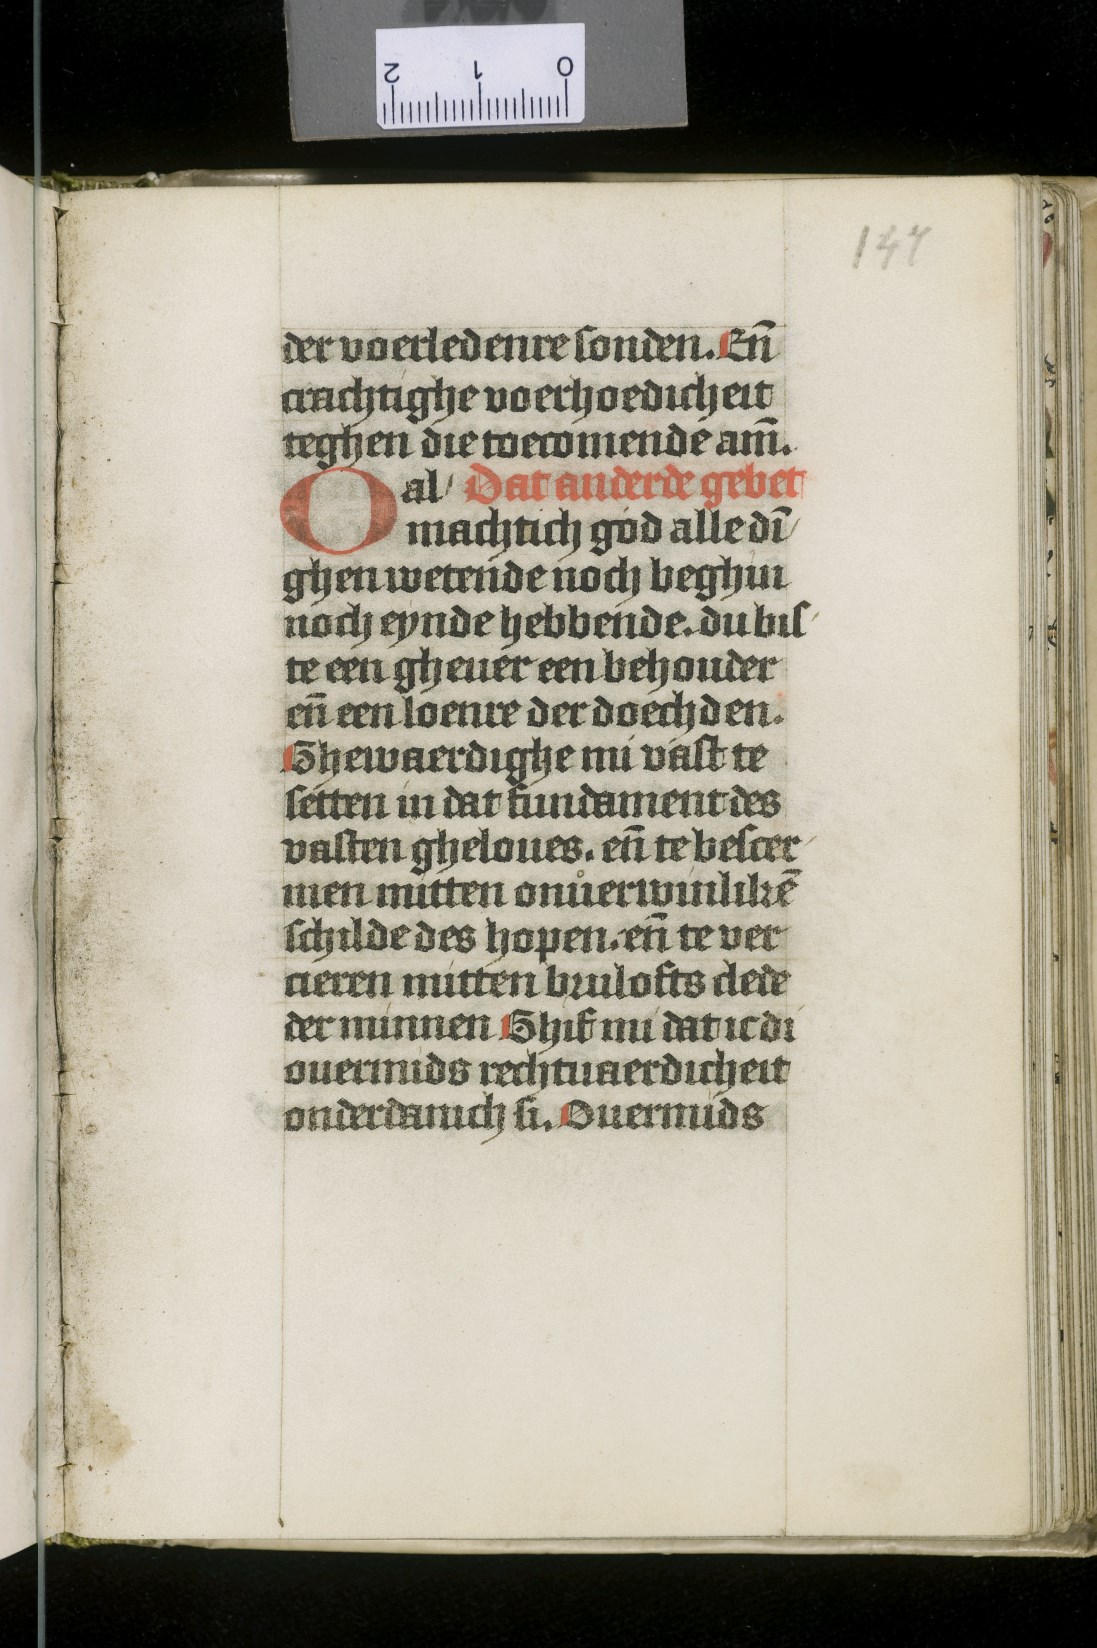 2 1 0
147
der voerledenre sonden. En̄
crachtighe voerhoedicheit
teghen die toecomende am̄.
O al Dat anderde gebet
machtich god alle dī
ghen wetende noch beghin
noch eynde hebbende. du bis
te een gheuer een behouder
en̄ een loenre der doechden.
Ghewaerdighe mi vast te
setten in dat fundament des
vasten gheloues. en̄ te bescer
men mitten onuerwinlikē
schilde des hopen. en̄ te ver
cieren mitten brulofts clede
der minnen Ghif mi dat ic di
ouermids rechtuaerdicheit
onderdanich si. Ouermids